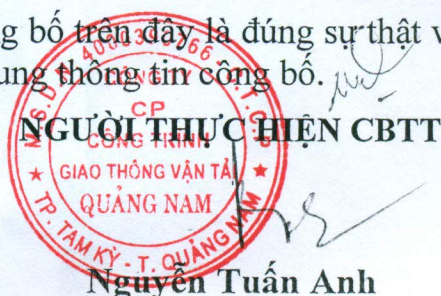 g bố trên đây là đúng sự thật v
ung thông tin công bố.
NGƯỜI THỰC HIỆN CBTT
CÔNG TY
CP
CÔNG TRÌNH
GIAO THÔNG VẬN TẢI
QUẢNG NAM
TP. TAM KỲ - T. QUẢNG NAM
Nguyễn Tuấn Anh